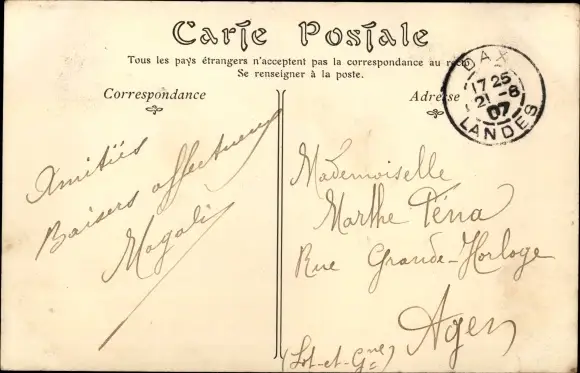 Carte Postale
Tous les pays étrangers n'acceptent pas la correspondance au recto
Se renseigner à la poste.
Correspondance
Adresse
DAX
17 25
21 - 8
07
LANDES
Amitiés
Baisers affectueux
Magali
Mademoiselle
Marthe Téna
Rue Grande-Horloge
Agen
(Lot-et-Gne)